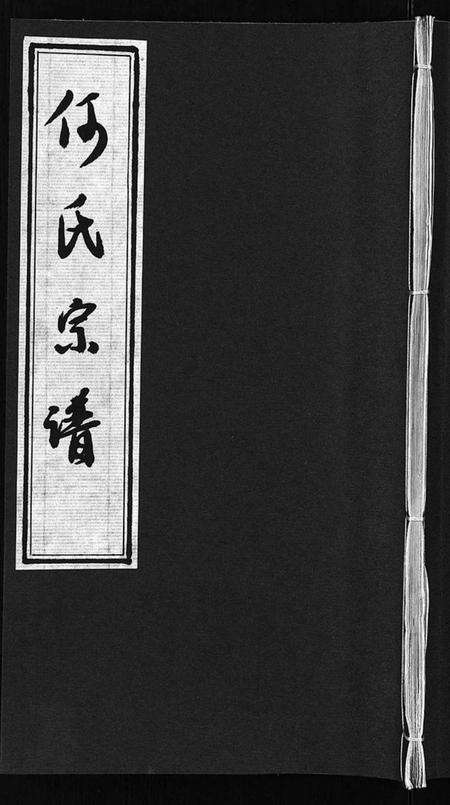 何氏宗谱